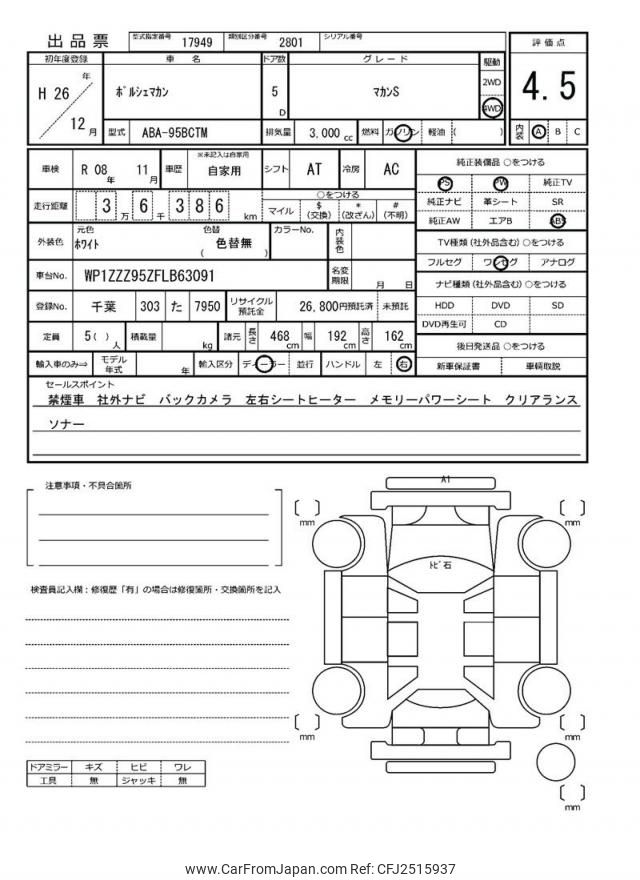 出品票
型式指定番号 17949 類別区分番号 2801 シリアル番号
初年度登録 車名 ドア数 グレード 駆動 評価点
H 26 年 12 月
ﾎﾟﾙｼｪﾏｶﾝ
5 D
マカンS
2WD
4WD
4.5
型式 ABA-95BCTM 排気量 3,000 cc 燃料 ガソリン 軽油 ( )
内装 A B C
車検 R 08 年 11 月 車歴 ※未記入は自家用 自家用 シフト AT 冷房 AC
純正装備品 ○をつける
PS PW 純正TV
純正ナビ 革シート SR
純正AW エアB ABS
走行距離 3 万 6 千 3 8 6 km
○をつける
マイル $ (交換) * (改ざん) # (不明)
外装色 元色 ﾎﾜｲﾄ 色替 ( 色替無 ) カラーNo. 内装色
TV種類 (社外品含む) ○をつける
フルセグ ワンセグ アナログ
車台No. WP1ZZZ95ZFLB63091 名変期限 月 日
ナビ種類 (社外品含む) ○をつける
HDD DVD SD
DVD再生可 CD
登録No. 千葉 303 た 7950 リサイクル預託金 26,800円預託済 未預託
定員 5( ) 人 積載量 kg 諸元 長さ 468 cm 幅 192 cm 高さ 162 cm
後日発送品 ○をつける
新車保証書 車輌取説
輸入車のみ⇒ モデル年式 年 輸入区分 ディーラー 並行 ハンドル 左 右
セールスポイント
禁煙車 社外ナビ バックカメラ 左右シートヒーター メモリーパワーシート クリアランス
ソナー
注意事項・不具合箇所
検査員記入欄：修復歴「有」の場合は修復箇所・交換箇所を記入
A1
ﾄﾋﾞ石
mm
mm
mm
mm
mm
ドアミラー キズ ヒビ ワレ
工具 無 ジャッキ 無
www.CarFromJapan.com Ref: CFJ2515937